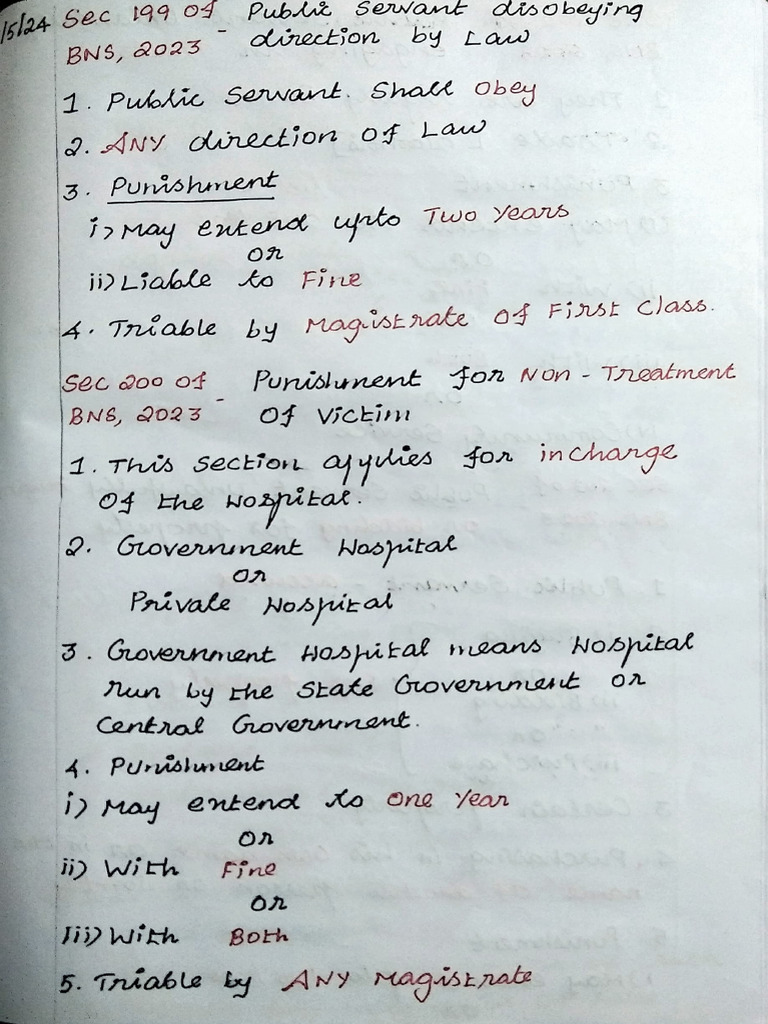 /5/24 Sec 199 of - Public Servant disobeying
BNS, 2023 direction by Law
1. Public Servant Shall Obey
2. ANY direction of Law
3. Punishment
i) May extend upto Two Years
or
ii) Liable to Fine
4. Triable by Magistrate of First Class.
Sec 200 of - Punishment for Non - Treatment
BNS, 2023 Of Victim
1. This section applies for incharge
Of the Hospital.
2. Government Hospital
or
Private Hospital
3. Government Hospital means Hospital
run by the State Government or
Central Government.
4. Punishment
i) May extend to One Year
or
ii) With Fine
or
iii) With Both
5. Triable by ANY Magistrate